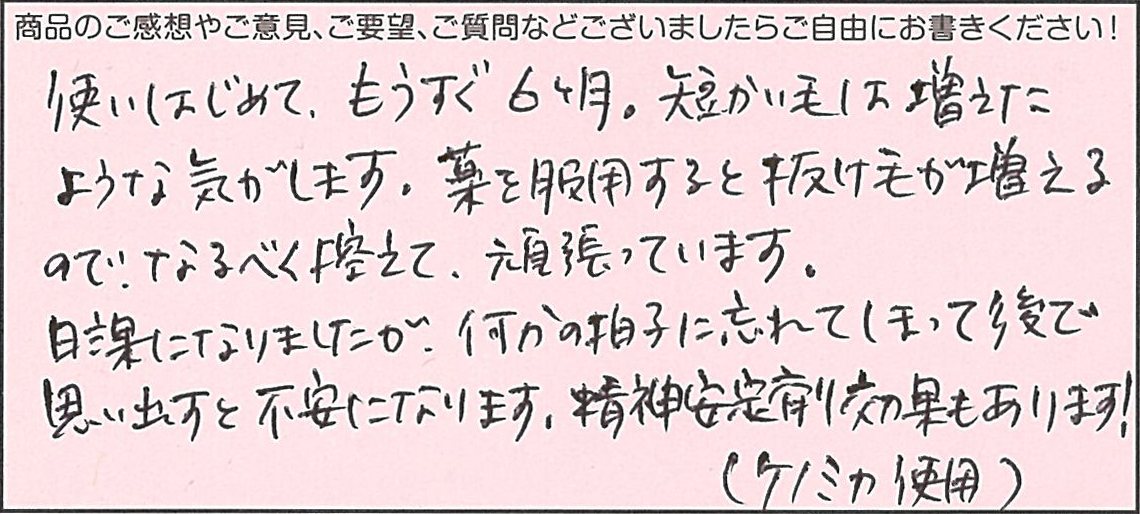 商品のご感想やご意見、ご要望、ご質問などございましたらご自由にお書きください！
使いはじめて、もうすぐ6ヶ月。短かい毛は増えた
ような気がします。薬を服用すると抜け毛が増える
ので、なるべく控えて、頑張っています。
日課になりましたが、何かの拍子に忘れてしまって後で
思い出すと不安になります。精神安定剤効果もあります！
（ケノミカ使用）